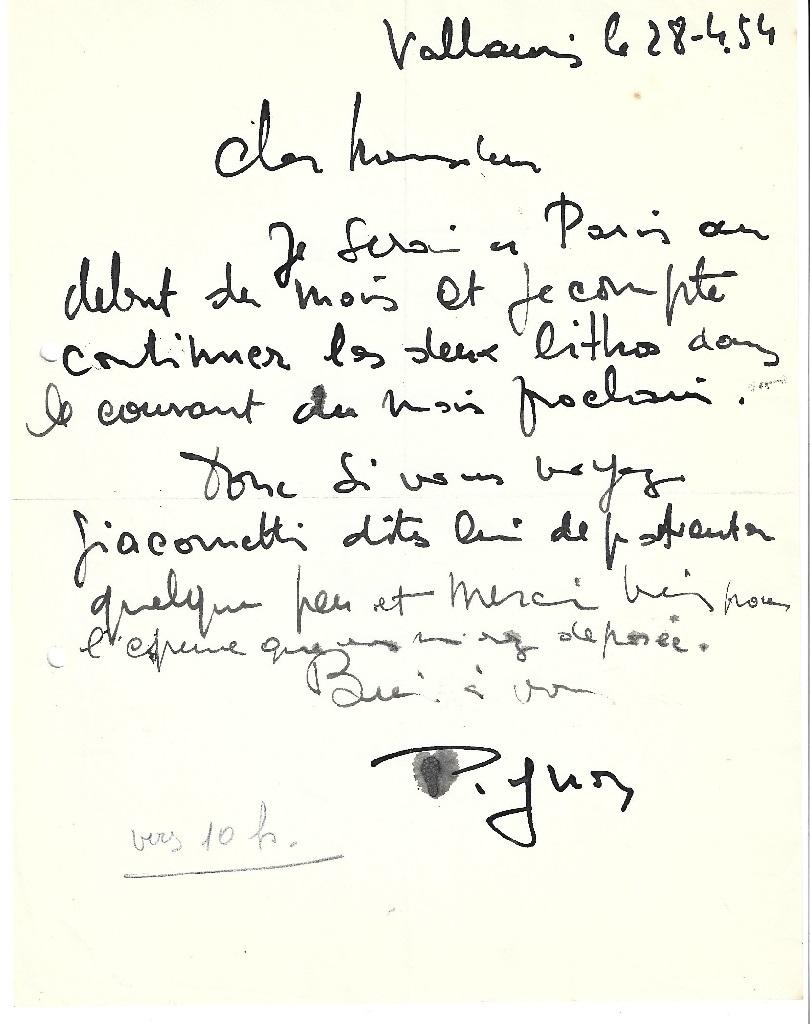 Vallauris le 28-4.54
Cher Monsieur
Je serai a Paris au
debut du mois et je compte
continuer les deux lithos dans
le courant du mois prochain.
Donc si vous voyez
Giacometti dites lui de patienter
quelque peu et merci bien pour
l'epreuve que vous m'avez deposée.
Bien à vous
Pignon
vers 10 h.